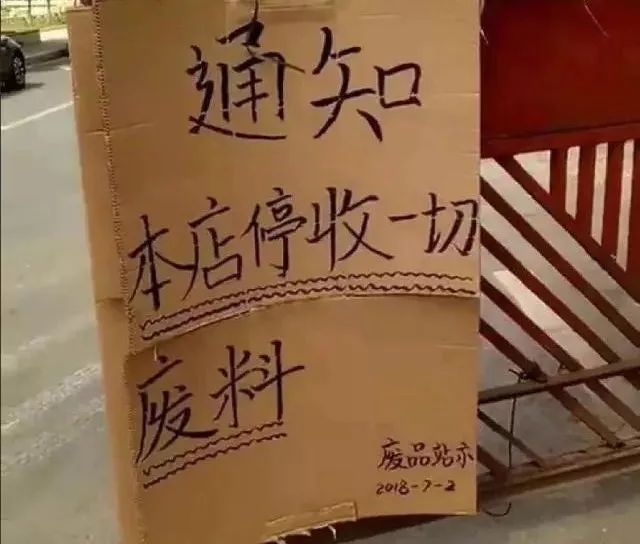 通知
本店停收一切
废料
废品站示
2018-7-2